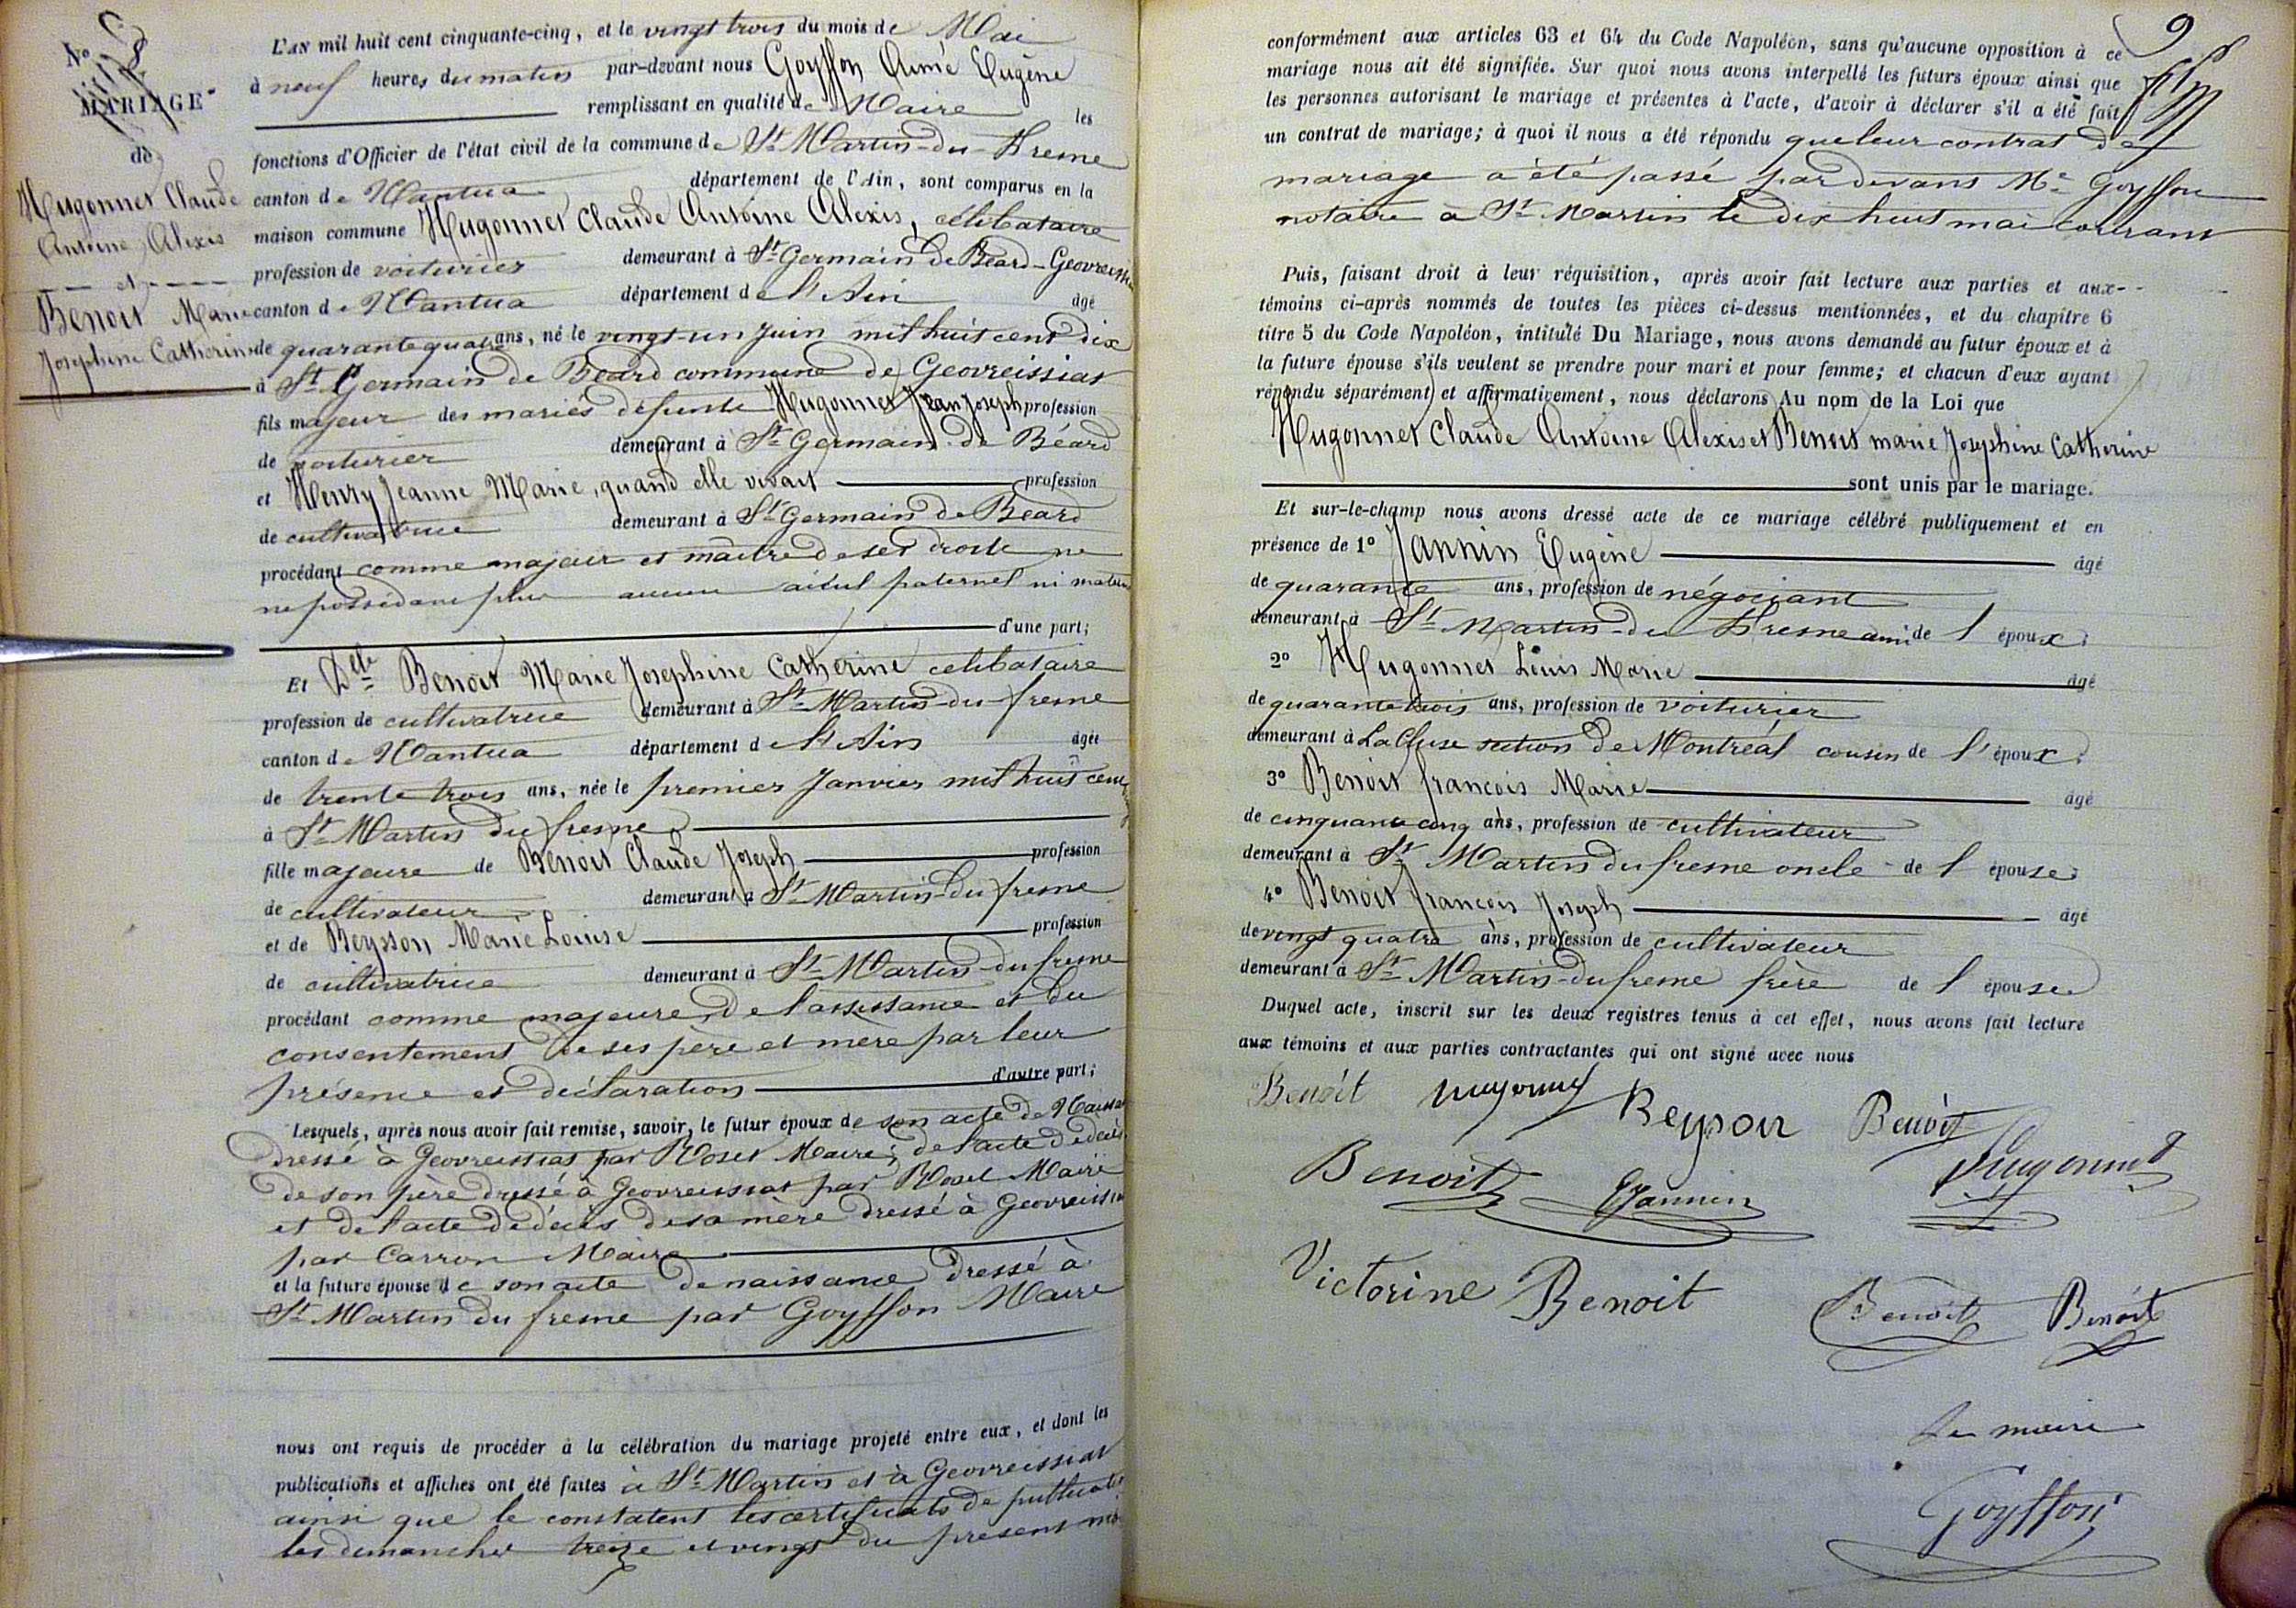 N° 8
MARIAGE
de
Hugonnet Claude
Antoine Alexis
et
Benoit Marie
Josephine Catherine
L'AN mil huit cent cinquante-cinq, et le vingt trois du mois de Mai
à neuf heures du matin par-devant nous Goyffon Aimé Eugène
remplissant en qualité de Maire les
fonctions d'Officier de l'état civil de la commune de St Martin-du-Fresne
canton de Nantua département de l'Ain, sont comparus en la
maison commune Hugonnet Claude Antoine Alexis, célibataire
profession de voiturier demeurant à St Germain de Béard-Geovreissiat
canton de Nantua département de l'Ain âgé
de quarante quatre ans, né le vingt-un juin mil huit cent dix
à St Germain de Béard commune de Geovreissiat
fils majeur des mariés défunts Hugonnet Jean Joseph profession
de voiturier demeurant à St Germain de Béard
et Henry Jeanne Marie, quand elle vivait profession
de cultivatrice demeurant à St Germain de Béard
procédant comme majeur et maitre de ses droits ne
ne possédant plus aucun aïeul paternel ni mater
d'une part;
Et Delle Benoit Marie Josephine Catherine celibataire
profession de cultivatrice demeurant à St Martin-du-fresne
canton de Nantua département de l'Ain âgée
de trente trois ans, née le premier Janvier mil huit cent
à St Martin du fresne
fille majeure de Benoit Claude Joseph profession
de cultivateur demeurant à St Martin-du-fresne
et de Beysson Marie Louise profession
de cultivatrice demeurant à St Martin-du-fresne
procédant comme majeure, de l'assistance et du
consentement de ses père et mère par leur
présence et déclaration d'autre part;
Lesquels, après nous avoir fait remise, savoir, le futur époux de son acte de Naissa
dressé à Geovreissiat par Maire; de l'acte de décès
de son père dressé à Geovreissiat par Maire
et de l'acte de décès de sa mère dressé à Geovreissiat
par Carron Maire
et la future épouse de son acte de naissance dressé à
St Martin du fresne par Goyffon Maire
nous ont requis de procéder à la célébration du mariage projeté entre eux, et dont les
publications et affiches ont été faites à St Martin et à Geovreissiat
ainsi que le constatent les certificats de publicat
les dimanches treize et vingt du présent mois
9
conformément aux articles 63 et 64 du Code Napoléon, sans qu'aucune opposition à ce
mariage nous ait été signifiée. Sur quoi nous avons interpellé les futurs époux ainsi que
les personnes autorisant le mariage et présentes à l'acte, d'avoir à déclarer s'il a été fait
un contrat de mariage; à quoi il nous a été répondu que leur contrat de
mariage a été passé par devant Me Goyffon
notaire à St Martin le dix huit mai courant
Puis, faisant droit à leur réquisition, après avoir fait lecture aux parties et aux
témoins ci-après nommés de toutes les pièces ci-dessus mentionnées, et du chapitre 6
titre 5 du Code Napoléon, intitulé Du Mariage, nous avons demandé au futur époux et à
la future épouse s'ils veulent se prendre pour mari et pour femme; et chacun d'eux ayant
répondu séparément et affirmativement, nous déclarons Au nom de la Loi que
Hugonnet Claude Antoine Alexis et Benoit marie Josephine Catherine
sont unis par le mariage.
Et sur-le-champ nous avons dressé acte de ce mariage célébré publiquement et en
présence de 1° Jannin Eugène âgé
de quarante ans, profession de négociant
demeurant à St Martin-du Fresne ami de l'époux;
2° Hugonnet Louis Marie âgé
de quarante trois ans, profession de voiturier
demeurant à La Cluse section de Montréal cousin de l'époux;
3° Benoit francois Marie âgé
de cinquante cinq ans, profession de cultivateur
demeurant à St Martin du fresne oncle de l'épouse;
4° Benoit francois Joseph âgé
de vingt quatre ans, profession de cultivateur
demeurant à St Martin-du fresne frère de l'épouse
Duquel acte, inscrit sur les deux registres tenus à cet effet, nous avons fait lecture
aux témoins et aux parties contractantes qui ont signé avec nous
Benoit hugonnet Beyson Benoit
Benoit EJannin Hugonnet
Victorine Benoit Benoit Benoit
Le maire
Goyffon